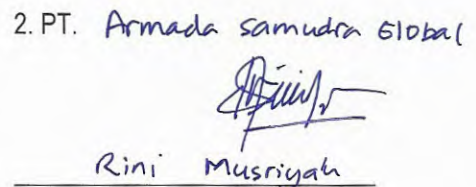 2. PT. Armada Samudra Global
Rini Musriyah